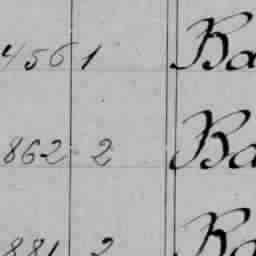 456 1 Ba
862 2 Ba
881 2 Ba